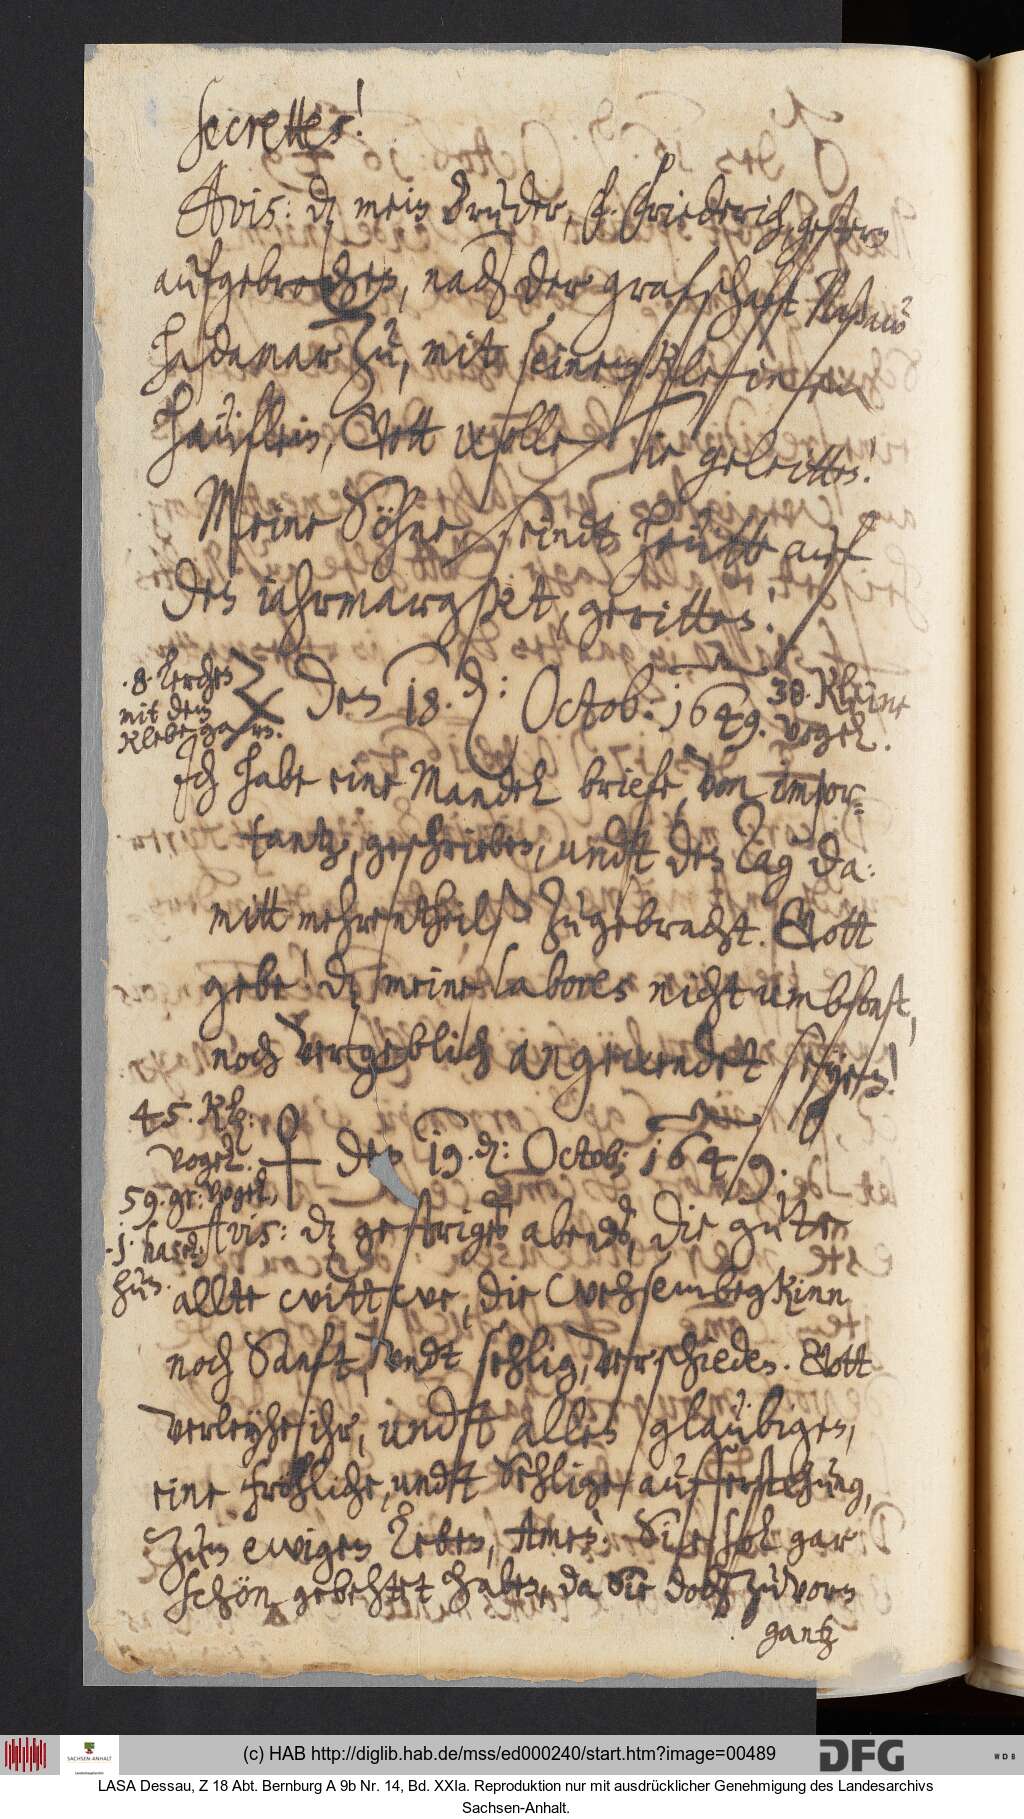 secrettes!
Avis: dz mein Bruder, F. Friederich, gestern
aufgebrochen, nach der grafschaft Naßaw
Hadamar zu, mitt seinem kleinen
häuflein, Gott wolle Sie geleitten!
Meine Söhne, seindt heütte auf
den iahrmargkt, geritten.
8. Lerchen
mit dem
Klebegarn.
den 18. d: Octob: 1649.
38. Kleine
vogel.
Ich habe eine Mandel briefe, von impor-
tantz, geschrieben, undt den Tag da:
mitt mehrentheilß zugebracht. Gott
gebe! dz meine labores nicht umbsonst,
noch vergeblich angewendet seyen!
45. Kl:
vogel.
59. gr: vogel,
1. hasel
hun.
den 19. d: Octob: 1649.
Avis: dz gestriges abends, die guten
allte wittwe, die Wehsembegkinn
noch Sanft, undt sehlig, verschieden. Gott
verleyhe ihr, undt allen glaübigen,
eine fröhliche, undt Sehlige aufferstehung,
zum ewigen Leben, Amen. Sie sol gar
schön gebehtet haben, da Sie doch zuvorn
gantz
(c) HAB http://diglib.hab.de/mss/ed000240/start.htm?image=00489
SACHSEN-ANHALT
DFG
WDB
LASA Dessau, Z 18 Abt. Bernburg A 9b Nr. 14, Bd. XXIa. Reproduktion nur mit ausdrücklicher Genehmigung des Landesarchivs
Sachsen-Anhalt.